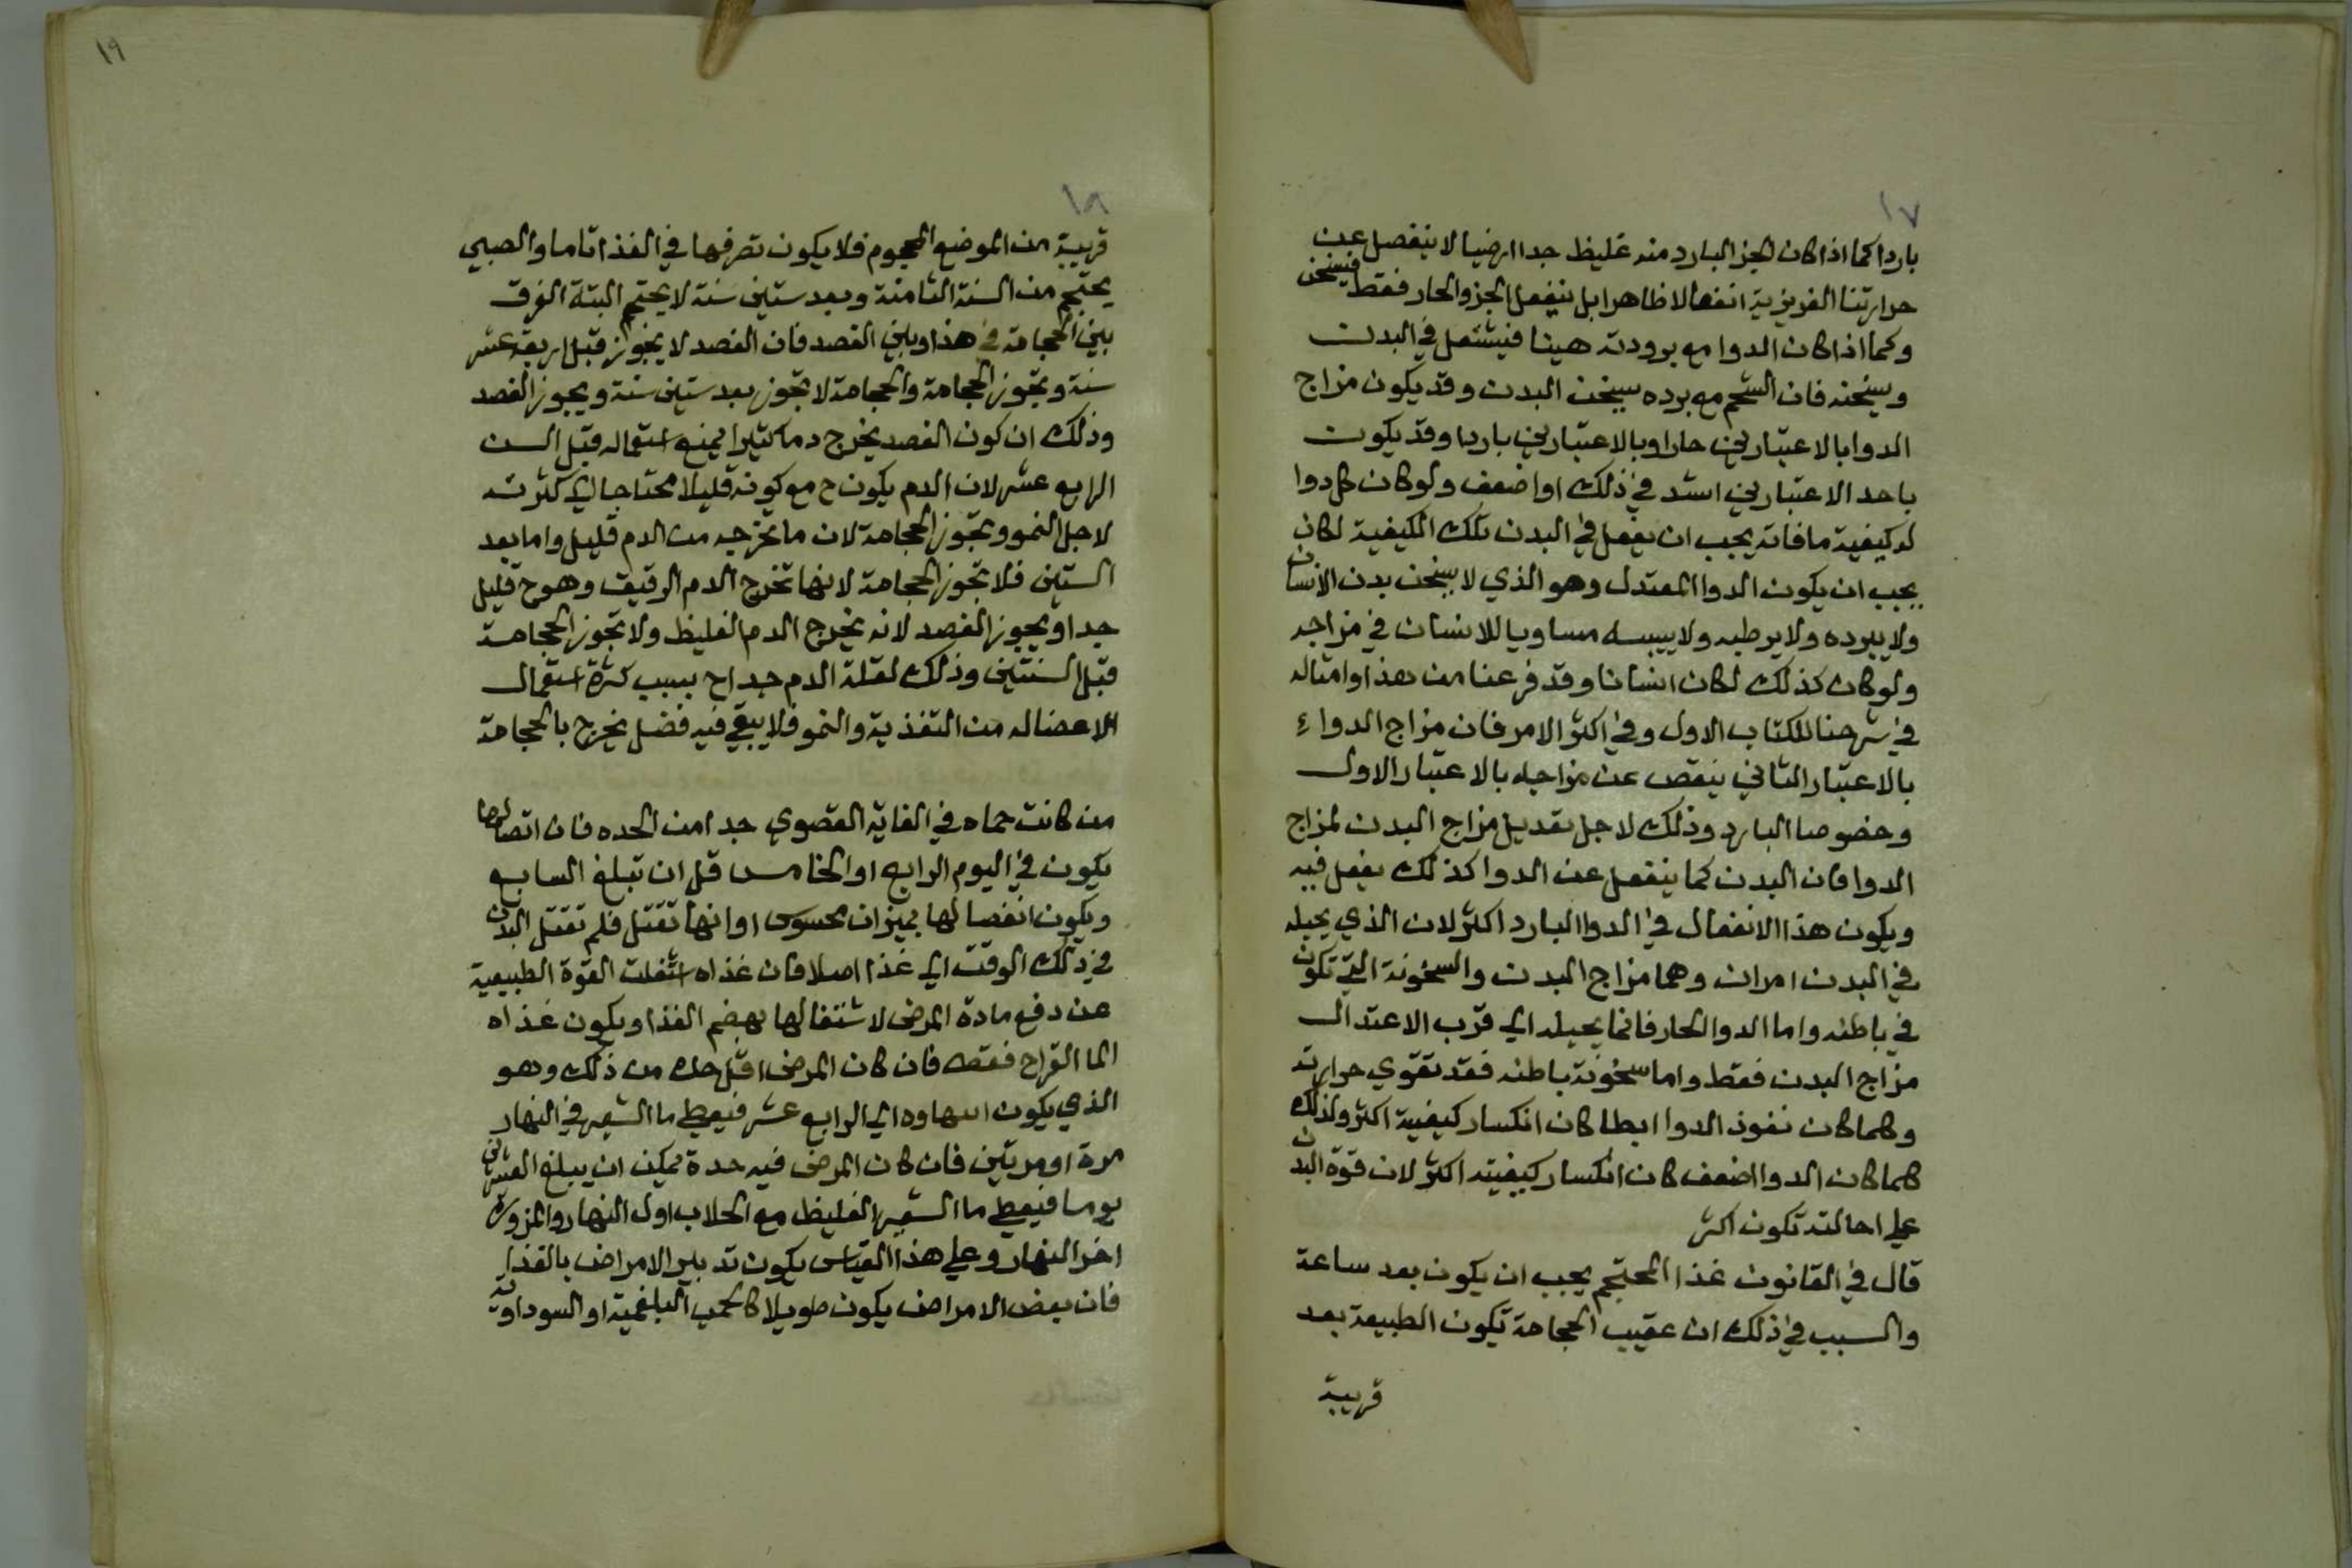 ١٧
باردا كما اذا كان الجز البارد منه غليظ جدا ارضيا لا ينفصل عن
حرارتنا الغريزية انفعالا ظاهرا بل ينفعل الجز والحار فقط فيسخن
وكما اذا كان الدوا مع برودته هينا فيشتعل في البدن
ويسخنه فان الشحم مع برده يسخن البدن وقد يكون مزاج
الدوا بالاعتبارين حارا وبالاعتبارين باردا وقد يكون
باحد الاعتبارين اشد في ذلك او اضعف ولو كان كل دوا
له كيفية ما فانه يجب ان يفعل في البدن تلك الكيفية لكان
يجب ان يكون الدوا المعتدل وهو الذي لا يسخن بدن الانسان
ولا يبرده ولا يرطبه ولا ييبسه مساويا للانسان في مزاجه
ولو كان كذلك لكان انسانا وقد فرعنا من هذا وامثاله
في شرحنا للكتاب الاول وفي اكثر الامر فان مزاج الدواء
بالاعتبار الثاني ينقص عن مزاجه بالاعتبار الاول
وخصوصا البارد وذلك لاجل تعديل مزاج البدن لمزاج
الدوا فان البدن كما ينفعل عن الدوا كذلك يفعل فيه
ويكون هذا الانفعال في الدوا البارد اكثر لان الذي يحيله
في البدن امران وهما مزاج البدن والسخونة التي تكون
في باطنه واما الدوا الحار فانما يحيله الي قرب الاعتدال
مزاج البدن فقط واما سخونة باطنه فقد تقوي حرارته
وكلما كان نفوذ الدوا ابطا كان انكسار كيفية اكثر ولذلك
كلما كان الدوا اضعف كان انكسار كيفيته اكثر لان قوة البدن
علي احالته تكون اكثر
قال في القانون غذا المحتجم يجب ان يكون بعد ساعة
والسبب في ذلك ان عقيب الحجامة تكون الطبيعة بعد
قريبة
١٩
١٨
قريبة من الموضع المحجوم فلا يكون تصرفها في الغذا تاما والصبي
يحتجم من السنة الثامنة وبعد ستين سنة لا يحتجم البتة الفرق
بين الحجامة في هذا وبين الفصد فان الفصد لا يجوز قبل اربعة عشر
سنة وتجوز الحجامة والحجامة لا تجوز بعد ستين سنة ويجوز الفصد
وذلك ان كون الفصد يخرج دما كثيرا يمنع استعماله قبل السن
الرابع عشر لان الدم يكون ح مع كونه قليلا محتاجا الي كثرته
لاجل النمو وتجوز الحجامة لان ما تخرجه من الدم قليل واما بعد
الستين فلا تجوز الحجامة لانها تخرج الدم الرقيق وهو ح قليل
جدا ويجوز الفصد لانه يخرج الدم الغليظ ولا تجوز الحجامة
قبل السنتين وذلك لقلة الدم جدا ح بسبب كثرة استعمال
الاعضا له من التغذية والنمو فلا يبقي فيه فضل يخرج بالحجامة
من كانت حماه في الغاية القصوي جدا من الحده فان اتصالها
يكون في اليوم الرابع او الخامس قبل ان تبلغ السابع
ويكون انفصالها بميزان محسوس او انها تقتل فلم تقتل البدن
في ذلك الوقت الي غذا اصلا فان غذاه اشغلت القوة الطبيعية
عن دفع مادة المرض لاشتغالها بهضم الغذا ويكون غذاه
الما القراح فقط فان كان المرض اقل حده من ذلك وهو
الذي يكون انتهاوه الي الرابع عشر فيعطي ما الشعير في النهار
مرة او مرتين فان كان المرض فيه حدة يمكن ان يبلغ العشرين
يوما فيعطي ما الشعير الغليظ مع الجلاب اول النهار والمزورة
اخر النهار وعلي هذا القياس يكون تدبير الامراض بالغذا
فان بعض الامراض يكون طويلا كالحمي البلغمية او السوداوية